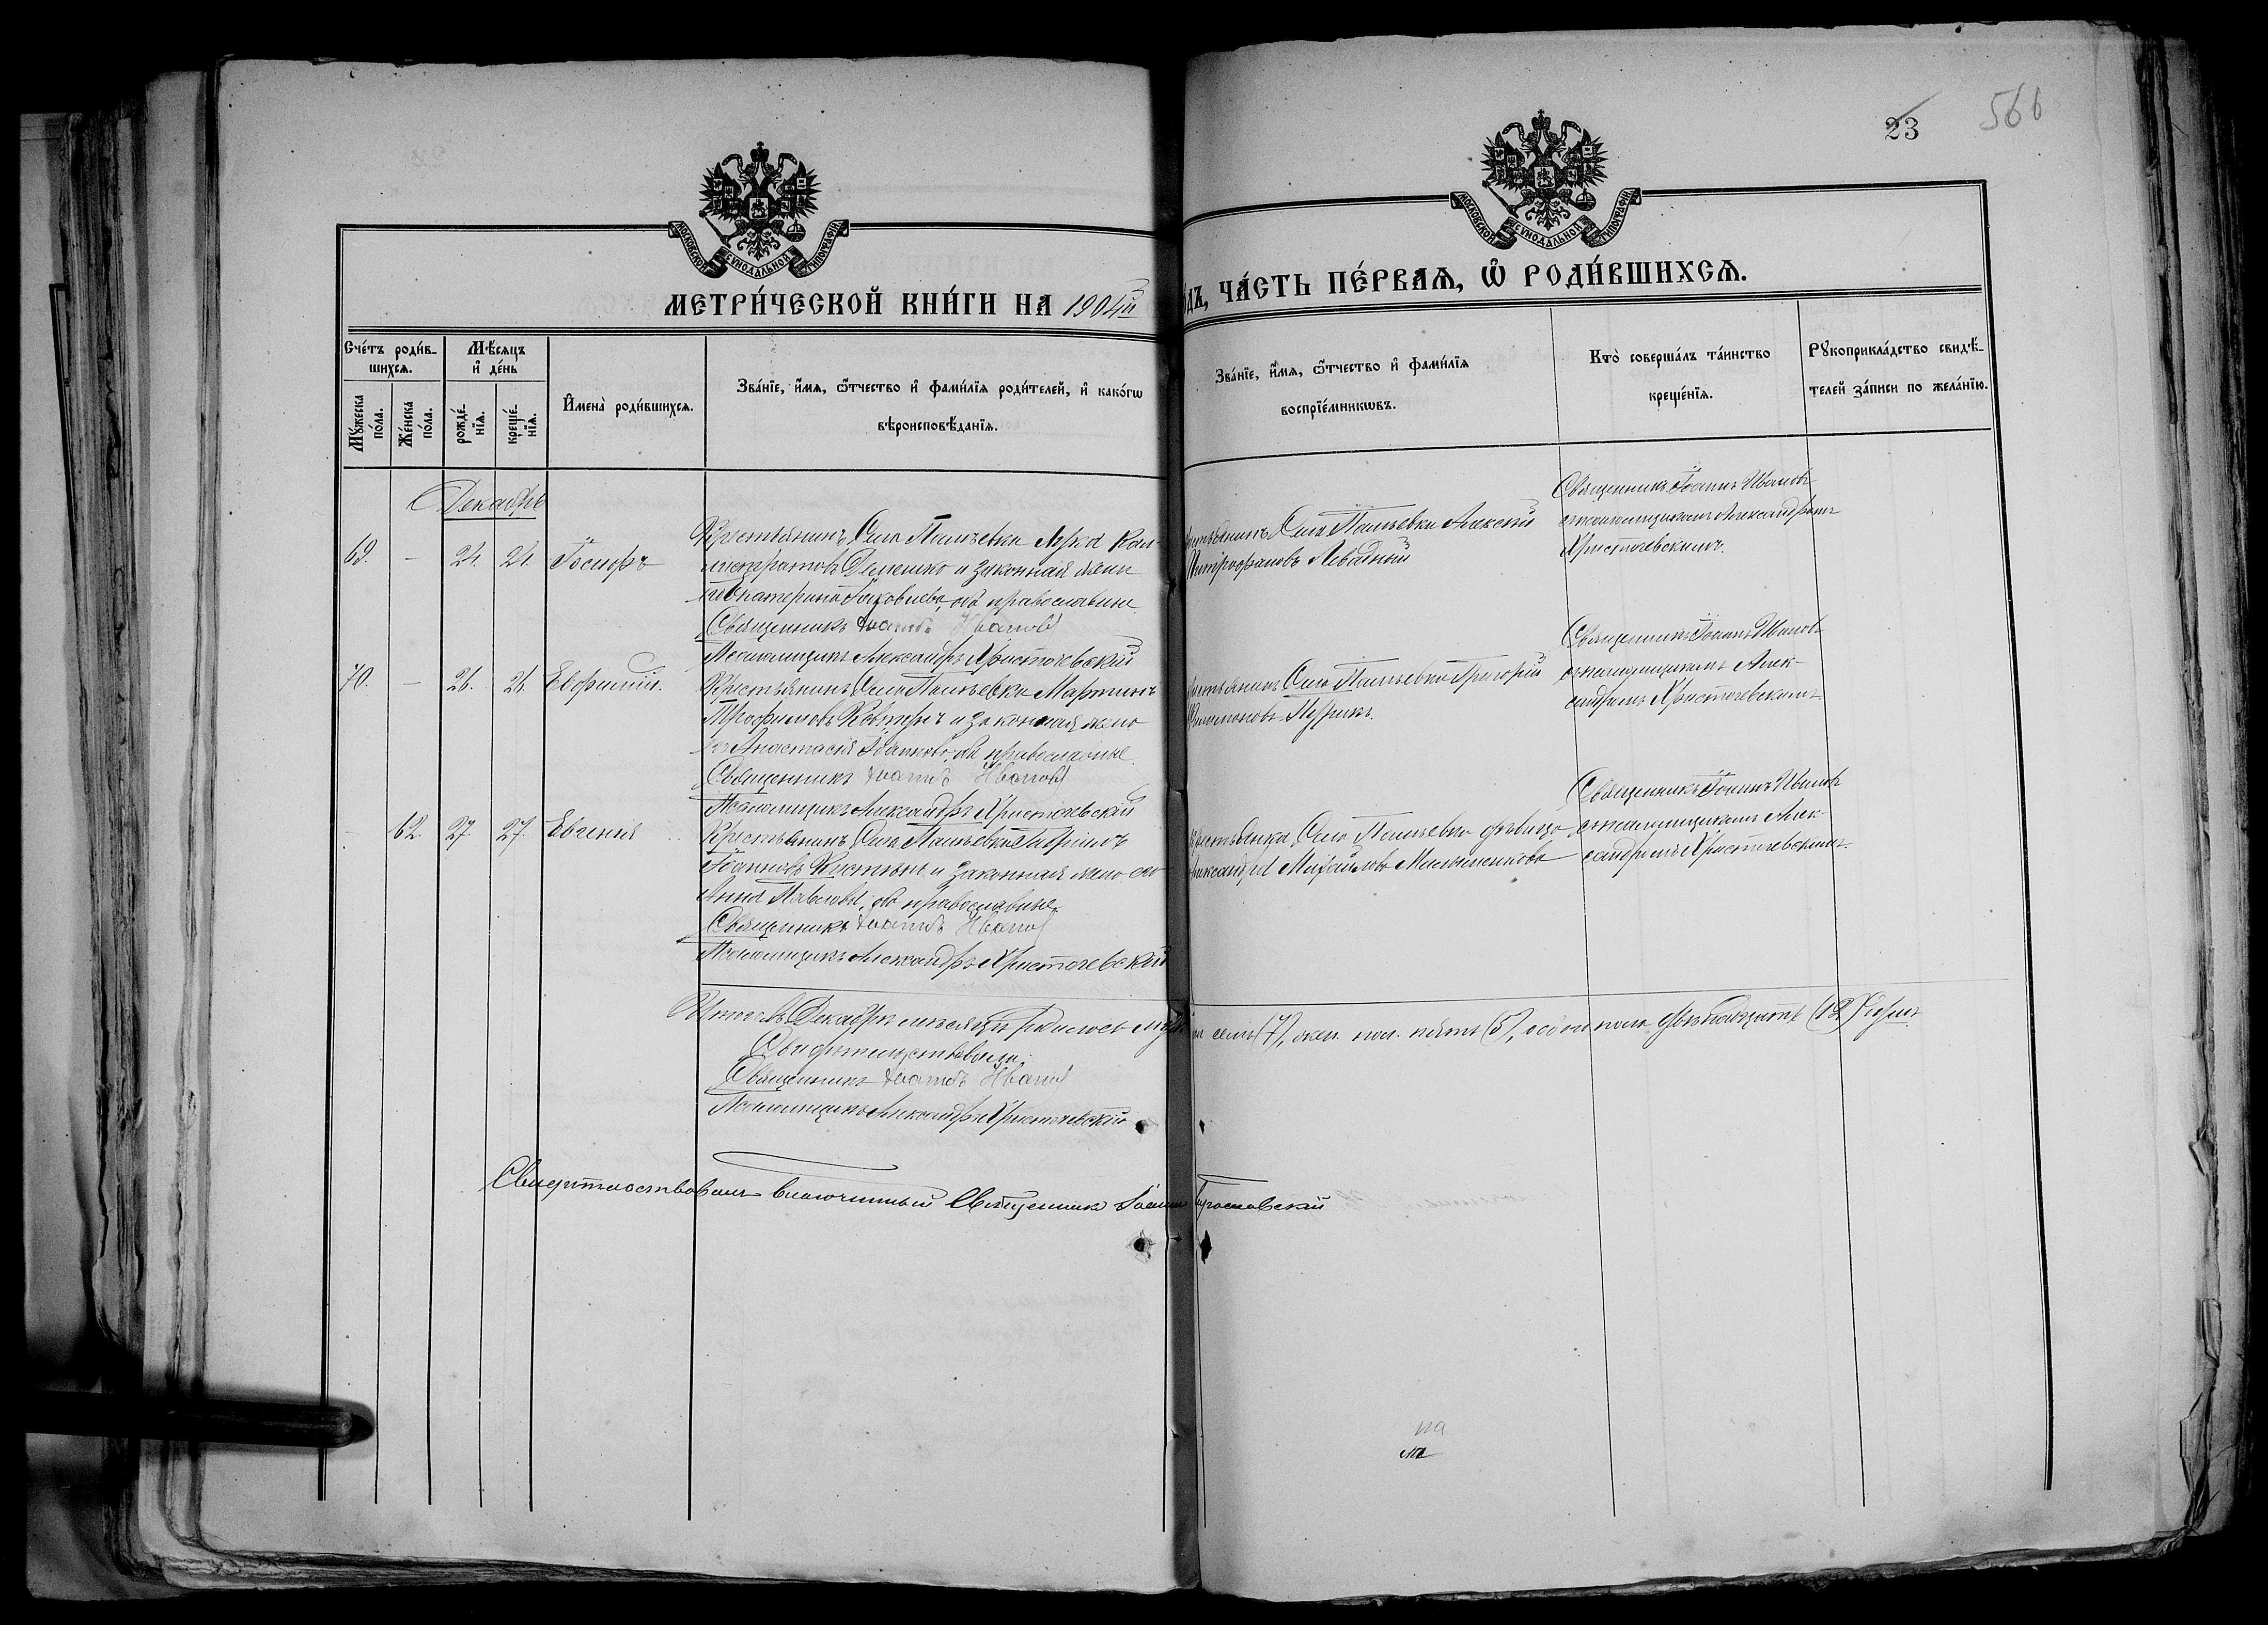 23 566
МОСКОВСКОЙ СѴНОДАЛЬНОЙ ТИПОГРАФІИ
МОСКОВСКОЙ СѴНОДАЛЬНОЙ ТИПОГРАФІИ
МЕТРИ́ЧЕСКОЙ КНИ́ГИ НА 1904й
дъ, ЧА́СТЬ ПЕ́РВАѦ, Ѽ РОДИ́ВШИХСѦ.
Сче́тъ роди́в-
шихсѧ.
Мѣ́сѧцъ
и҆ де́нь
Мꙋ́жеска
по́ла.
Же́нска
по́ла.
рожде́-
нїѧ.
креще́-
нїѧ.
И҆мена̀ роди́вшихсѧ.
Зва́нїе, и҆́мѧ, ѻ҆́тчество и҆ фами́лїѧ роди́телей, и҆ како́гѡ
вѣроисповѣ́данїѧ.
Зва́нїе, и҆́мѧ, ѻ҆́тчество и҆ фами́лїѧ
воспрїе́мникѡвъ.
Кто̀ соверша́лъ та́инство
креще́нїѧ.
Рꙋкоприкла́дство свидѣ́-
телей за́писи по жела́нїю.
Декабрь
69. — 24. 24. Іосифъ
Крестьянинъ Села Палѣевки
Демешко и законная жена
его Екатерина Іаковлева, оба православные
Священникъ Іоаннъ Иванов
Псаломщикъ Александръ Христочевскій
Села Палѣевки Алексѣй
Митрофановъ Левадный
Священникъ Іоаннъ Ивановъ
съ псаломщикомъ Александромъ
Христочевскимъ.
70. — 26. 26. Евфимій.
Крестьянинъ Села Палѣевки Мартинъ
Трофимовъ и законная жена
его Анастасія Іоаннова, оба православные.
Священникъ Іоаннъ Иванов
Псаломщикъ Александръ Христочевскій
Села Палѣевки Григорій
Священникъ Іоаннъ Ивановъ
съ псаломщикомъ Алек-
сандромъ Христочевскимъ.
— 62. 27. 27. Евгенія
Крестьянинъ Села Палѣевки
Іоанновъ и законная жена его
Анна Павлова, оба православные.
Священникъ Іоаннъ Иванов
Псаломщикъ Александръ Христочевскій
Села Палѣевки дѣвица
Александра Михайлова
Священникъ Іоаннъ Ивановъ
съ псаломщикомъ Алек-
сандромъ Христочевскимъ.
Итого въ Декабрѣ мѣсяцѣ родилось муж. пол. семь (7), жен. пол. пять (5), обоего пола двѣнадцать (12) душъ.
Свидѣтельствовали:
Священникъ Іоаннъ Иванов
Псаломщикъ Александръ Христочевскій
Свидѣтельствовалъ благочинный Священникъ Іоаннъ